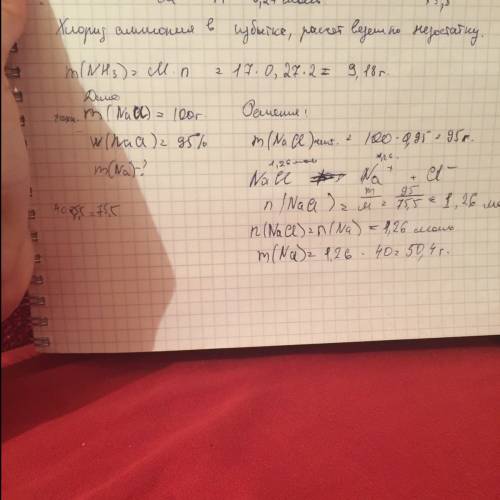 Хлорид аммония в избытке, расчет ведем по недостатку.
m(NH₃) = M · n = 17 · 0,27 · 2 = 9,18 г.
Дано
m(NaCl) = 100г
W(NaCl) = 95%
m(Na)-?
Решение:
m(NaCl) = 100 · 0,95 = 95 г.
1,26 моль
NaCl Na⁺ + Cl⁻
n(NaCl) = m/M = 95/75,5 = 1,26
n(NaCl) = n(Na) = 1,26 моль
m(Na) = 1,26 · 40 = 50,4 г.